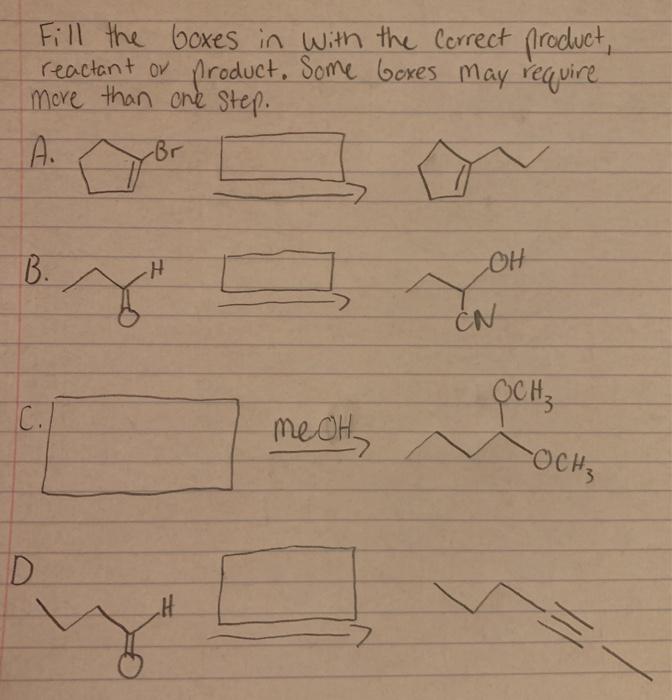 Fill the boxes in with the correct product,
reactant or product. Some boxes may require
more than one step.
A.
Br
B.
H
O
OH
CN
C.
meOH
OCH3
OCH3
D
H
O